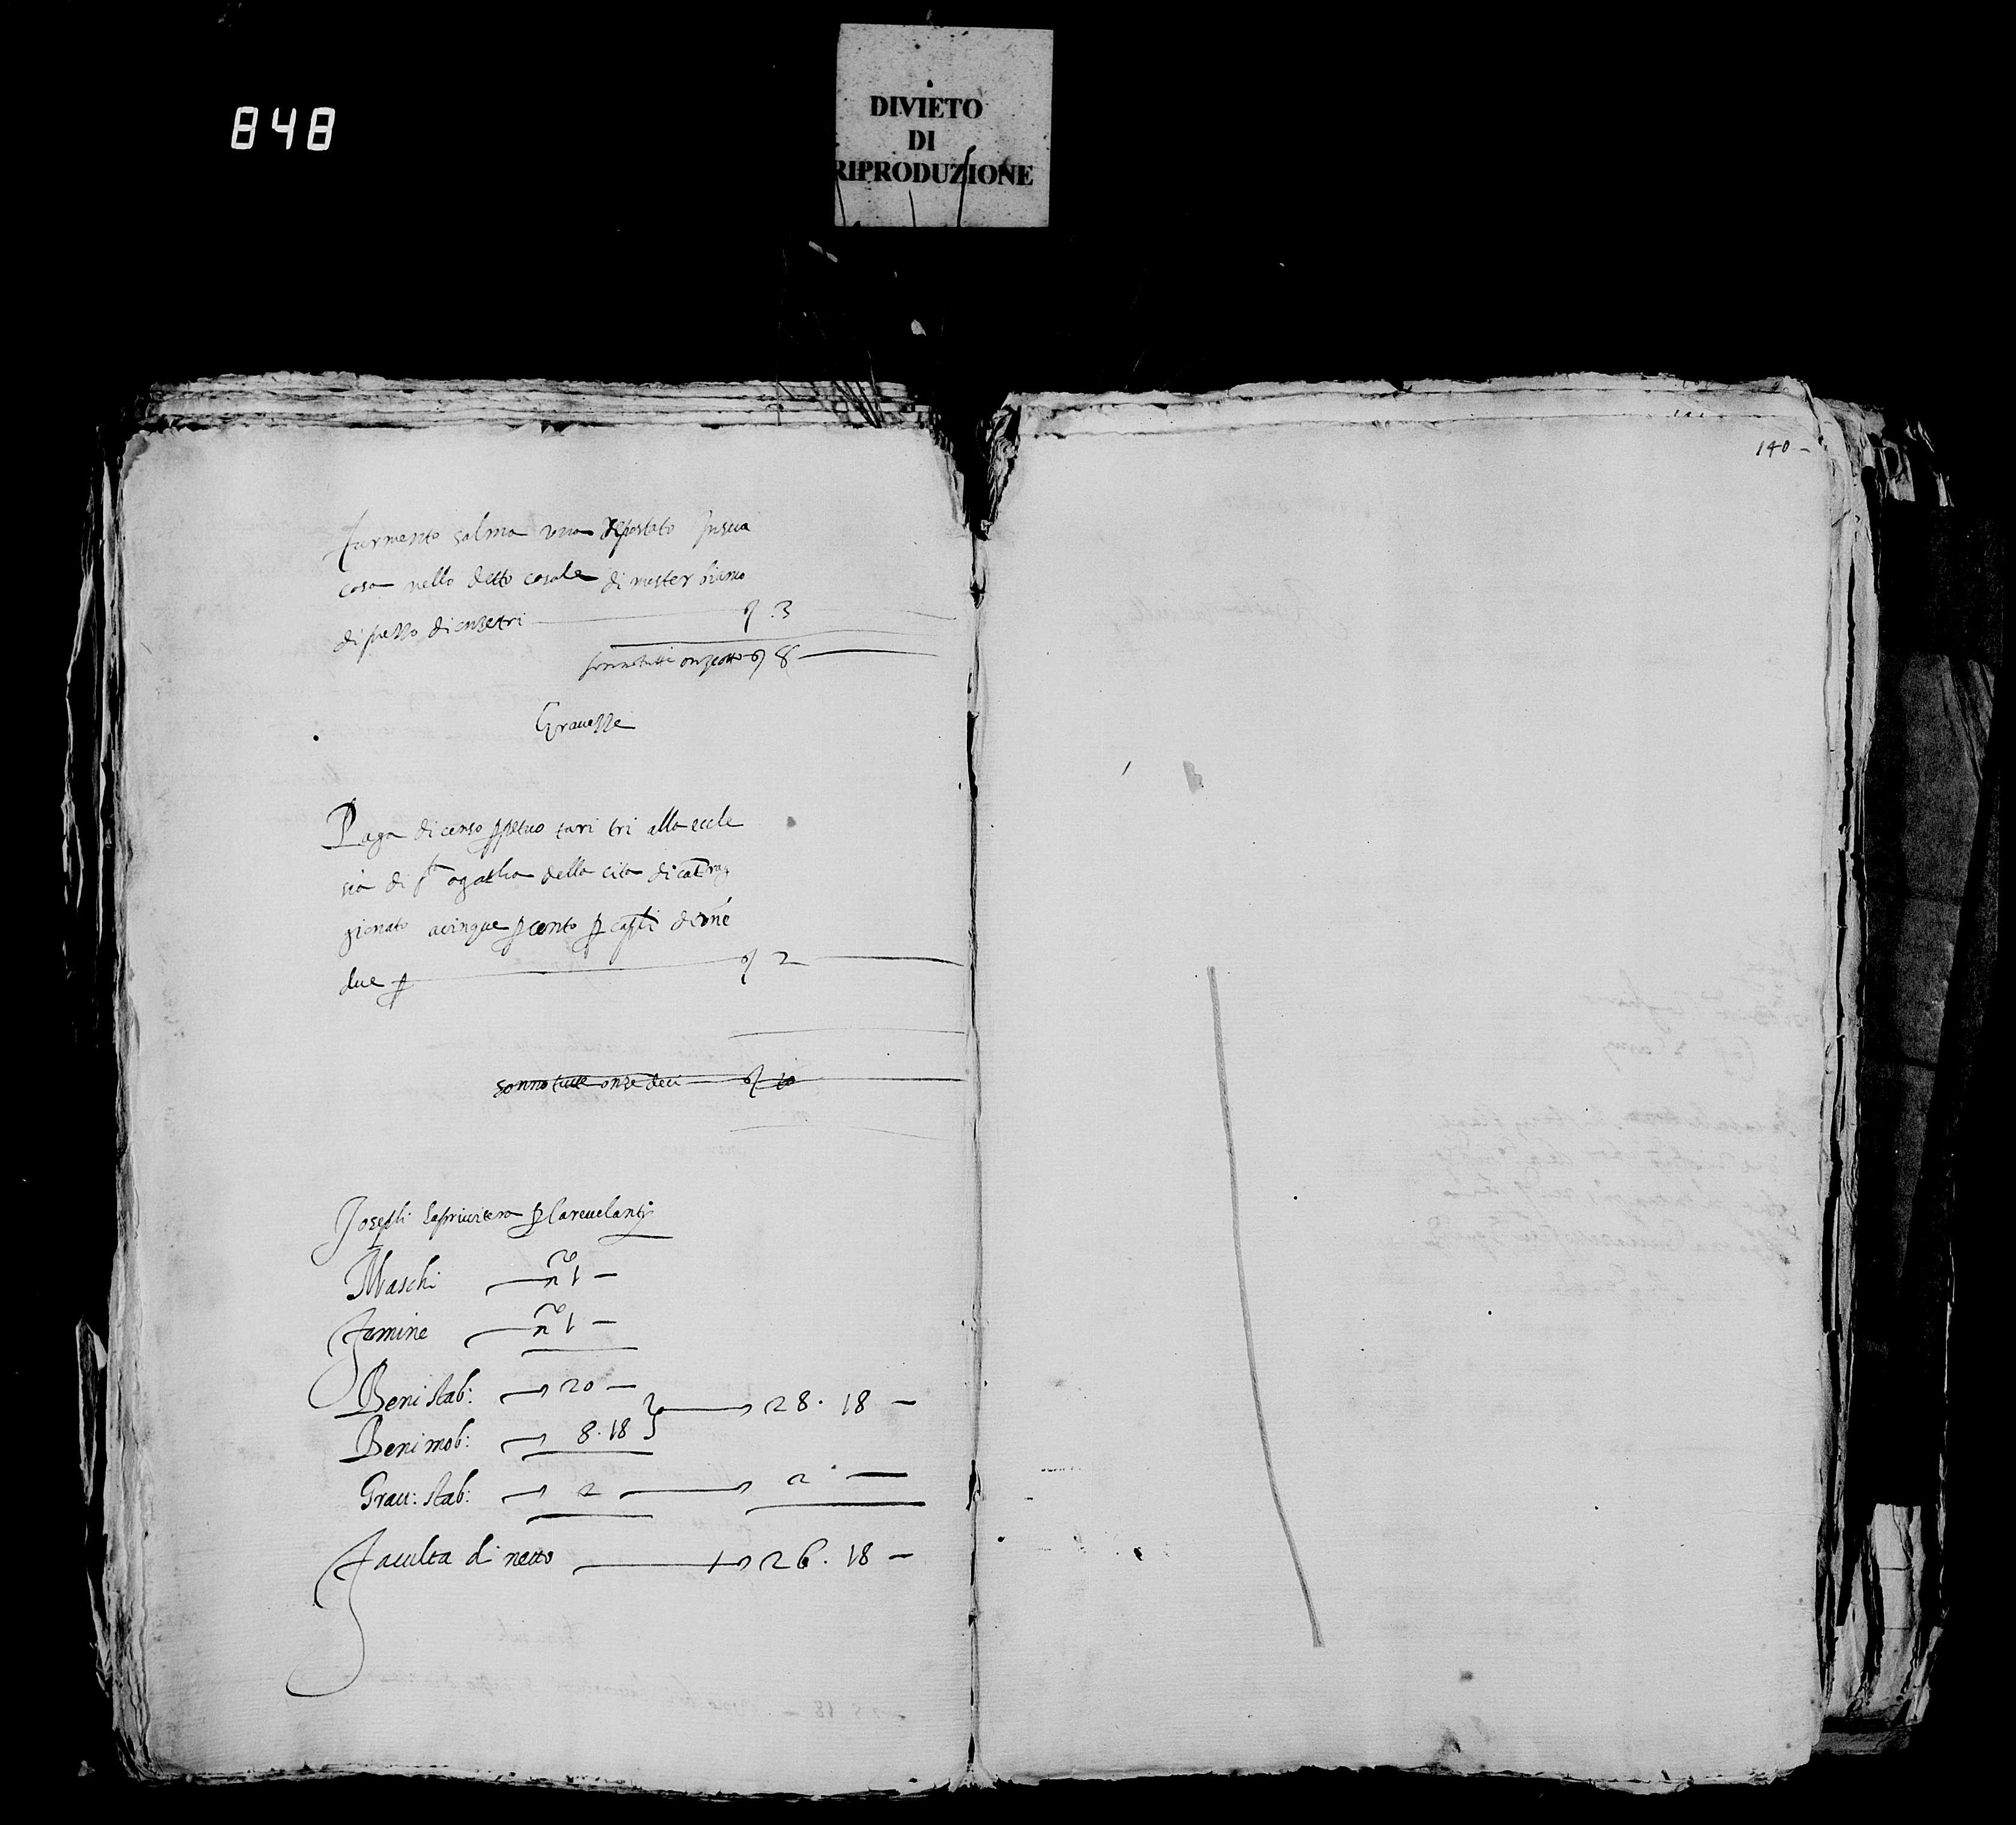 848
DIVIETO
DI
RIPRODUZIONE
140 -
furmento salma una Repostato in sua
casa nello detto casale di mister bianco
di prezzo di onze tri — 3
sonno tutti onze otto — 8 —
Gravezze
Paga di censo perpetuo tari tri alla eccle
sia di sta agatha della cita di cat rag
gionato a cinque per cento per capli di onze
due p — 2 —
sonno tutte onze deci — 10
Joseph la privitera p la revelanti
Maschi — no 1 —
Femine — no 1 —
Beni stab: — 20 —
Beni mob: — 8. 18 } — 28. 18 —
Grav: stab: — 2 — 2. —
Faculta di netto — 26. 18 —